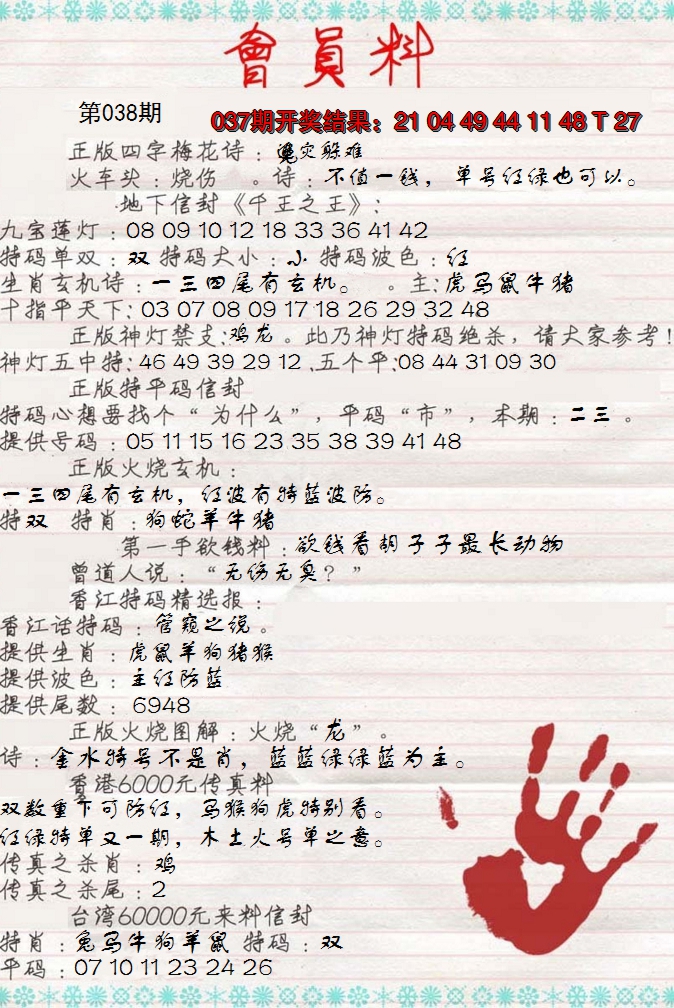 會員料
第038期
037期开奖结果：21 04 49 44 11 48 T 27
正版四字梅花诗：灾躲难
火车头：烧伤 。诗：不值一钱，单号红绿也可以。
地下信封《千王之王》：
九宝莲灯：08 09 10 12 18 33 36 41 42
特码单双：双 特码大小：小 特码波色：红
生肖玄机诗：一三四尾有玄机。 。主：虎马鼠牛猪
十指平天下：03 07 08 09 17 18 26 29 32 48
正版神灯禁支：鸡龙。此乃神灯特码绝杀，请大家参考！
神灯五中特：46 49 39 29 12 .五个平：08 44 31 09 30
正版特平码信封
特码心想要找个“为什么”，平码“市”，本期：二三 。
提供号码：05 11 15 16 23 35 38 39 41 48
正版火烧玄机：
一三四尾有玄机，红波有特蓝波防。
特双 特肖：狗蛇羊牛猪
第一手欲钱料：欲钱看胡子子最长动物
曾道人说：“无伤无臭？”
香江特码精选报：
香江话特码：管窥之说。
提供生肖：虎鼠羊狗猪猴
提供波色：主红防蓝
提供尾数：6948
正版火烧图解：火烧“龙”。
诗：金水特号不是肖，蓝蓝绿绿蓝为主。
香港6000元传真料
双数重下可防红，马猴狗虎特别看。
红绿特单又一期，木土火号单之意。
传真之杀肖：鸡
传真之杀尾：2
台湾60000元来料信封
特肖：兔马牛狗羊鼠 特码：双
平码：07 10 11 23 24 26